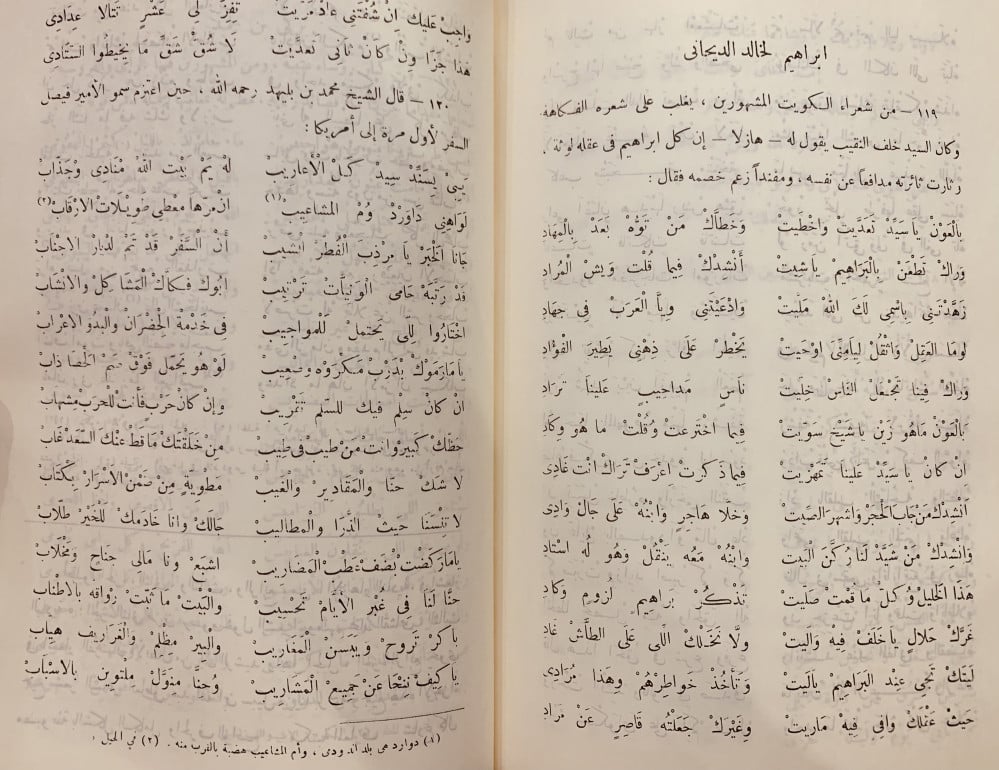 ابراهيم لخالد الديحانى
١١٩ — من شعراء الكويت المشهورين ، يغلب على شعره الفكاهة
وكان السيد خلف النقيب يقول له — هازلا — إن كل ابراهيم فى عقله لوثة .
ثارت ثائرته مدافعاً عن نفسه ، ومفنداً زعم خصمه فقال :
بِالْعَوْنْ يَاسَيِّدْ تَعَدَّيتْ وَاخْطَيتْ وَخْطَاكْ مَنْ تَوُّهْ بَعَدْ بِالْمِهَادِ
وَرَاكْ تَطْعَنْ بِالْبَرَاهِيمْ يَاشِيتْ أَنْشِدْكْ فِيمَا قُلْتْ وَيشْ الْمُرادِ
زَهَّدْتَنِى بِاسْمِى لَكَ اللهْ مَلَّيتْ وَادْعَيْتَنِى وِيَّا الْعَرَبْ فِى جِهَادِ
لَومَا الْعَقِلْ وَاثْقُلْ لِيَامِنِّى اوْحَيتْ يَخْطُرْ عَلَى ذِهْنِى يَطِيرْ الفُوَّادِ
وَرَاكْ فِينَا تَجْعَلْ النَّاسْ خِلِّيتْ نَاسٍ مَدَاجِيبٍ عَلَيْنَا تَرَادِ
بِالْعَوْنْ مَاهُو زَيْن يَاشَيْخْ سَوَّيتْ فِيمَا اخْتَرعتْ وْقُلْتْ مَا هُو وِكَادِ
انْ كَانْ يَاسَيِّدْ عَلَيْنَا تَمَهْزَيتْ فِيمَا ذَكَرتْ اِعْرَفْ تَرَاكْ انْتْ غَادِى
أَنْشِدْكْ مَنْ جَابْ الْحَجَرْ وَاشْهَر الصِّيتْ وَخَلَّا هَاجِرٍ وَابْنُهْ عَلَى جَالْ وَادِى
وَانْشِدْكْ مَنْ شَيَّدْ لَنَا رُكْنَ الْبَيتْ وَابْنُهْ مَعَه يَنْقُلْ وَهُو لُه اسْتَادِ
هَذَا الْخَلِيلْ وْكِلّ مَا قُمْتْ صَلَّيتْ تَذْكُرْ بَرَاهِيمٍ لُزُومٍ وَكَادِ
غَرَّكْ حَلَالٍ يَاخَلَفْ فِيهْ وَالَّيتْ وَلَّا تَخَلَّكْ اللِّى عَلَى الطَّاشْ غَادِ
لَيتَكْ تَجِى عِنْد الْبَرَاهِيمْ يَالَيتْ وَتَأْخُذْ خَوَاطِرْهُمْ وَهَذَا مُرَادِى
حَيثْ عَقْلَكْ وَافِى فِيهْ مَارَيتْ وِغَيْرَكْ جَعَلْتُه قَاصِرٍ عَنْ مَرَادِ
وَاجِبْ عَلَيْكْ انْ شُفْتَنِى تِفِزّ لِى عَشْرٍ تَتَالَا عِدَادِى
هَذَا جَزَا وِنْ كَانْ ثَانِى تَعَدَّيتْ لَا شُقّ شَقٍّ مَا يَخِيطُوا السَّنَادِى
١٢٠ — قال الشيخ محمد بن بليهد رحمه الله ، حين اعتزم سمو الأمير فيصل
السفر لأول مرة إلى أمريكا :
يَبِىْ يِسْنِدْ سِيدْ كِلّ الْأَعَارِيبْ لُهْ يَمّ بَيْت اللهْ مْنَادِى وِجْذَّابْ
لَوَاهِنِى دَاوَرْدْ وُمْ المشَاعِيبْ (١) انْ مَرّهَا مِعْطِى طِوِيلَاتْ الارْقَابْ (٢)
جَانَا الْخَبَرْ يَا مِرْذِبَ الْفُطَّرْ الشِّيبْ أَنّ السَّفَرْ قَدْ تَمّ لَدْيَارْ الاجْنَابْ
قَدْ رَتَّبَهْ حَامِى الْوَنِيَّاتْ تَرْتِيبْ ابُوكْ فَكَّاكْ الْمَشَاكِلْ وَالانْشَابْ
اخْتَارُوا لِلَّى يَحْتِمِلْ لَلْمَوَاجِيبْ فِى خَدْمَةَ الْحِضْرَانْ وَالْبَدُو الاعْرَابْ
يَا مَا رَمَوْكْ بْدَرْبْ مَكْرَوُهْ وصَعِيبْ لَوْ هُو يَحَمَّلْ فَوْقْ صَمّ الْحَصَا ذَابْ
انْ كَانْ سِلْمٍ فيكْ للسّلمْ تَقْرِيبْ وِإنْ كَانْ حَرْبٍ فأنتْ للحَرْبْ مِشْهَابْ
حَظّكْ كَبِيرْ وانتْ مَنْ طيبْ فى طِيبْ مِنْ خَلْقَتَكْ مَا قَطّ عَنْكْ السّعَدْ غَابْ
لا شَكّ حَنَّا وَالْمَقَادِيرْ وَالْغَيبْ مَطوِيّةٍ مِنْ ضَمْنَ الأسْرَارْ بِكْتَابْ
لا تِنْسَنَا حَيثْ الذَّرَا وَالْمطَالِيبْ جَالَكْ وَانَا خَادَمكْ لَلْخَيْر طَلَّابْ
يَامَا رَكَضْت بْنَصّفْ عَطْبْ الْمَضَارِيبْ اشَيَعْ وَنَا مَالِى جِنَاحٍ وَمْخْلَابْ
حِنَّا لَنَا فِى غُبْر الأيَّامْ تَحْسِيبْ وَالْبَيْتْ مَا ثَبَّتْ رْوَاقِه بَالاطْنَابْ
بَاكِرْ تَرُوحْ وَيَيْبَسَنْ الْمَغَارِيبْ وَالْبِيرْ مِظْلِمْ وَالْغَرَارِيفْ هِيَّابْ
يَا كِيفْ نِنْحَا عَنْ جَمِيعْ الْمَشَارِيبْ وْحِنَّا مِنَوَّلْ مِلْتوِينٍ بَالاسْبَابْ
(١) دوارد هى بلد الدودى ، وأم المشاعيب هضبة بالقرب منه . (٢) فى الحيل .